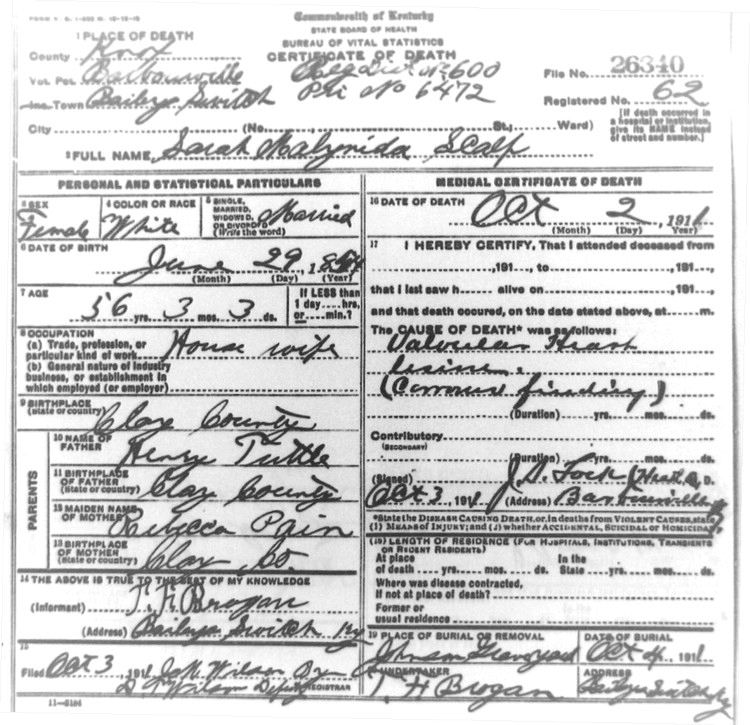 FORM V. S. 1-
Commonwealth of Kentucky
STATE BOARD OF HEALTH
BUREAU OF VITAL STATISTICS
CERTIFICATE OF DEATH
1 PLACE OF DEATH
County Knox
Vot. Pct. Barbourville
Inc. Town Baileys Switch
City (No. St.; Ward)
No 600
Pri No 6472
File No. 26340
Registered No. 62
[If death occurred in a hospital or institution, give its NAME instead of street and number.]
2 FULL NAME Sarah Malynida Scalf
PERSONAL AND STATISTICAL PARTICULARS
3 SEX Female
4 COLOR OR RACE White
5 SINGLE, MARRIED, WIDOWED, OR DIVORCED (Write the word) Married
6 DATE OF BIRTH
June 29 , 1
(Month) (Day) (Year)
7 AGE
56 yrs. 3 mos. 3 ds.
If LESS than 1 day hrs. or min.?
8 OCCUPATION
(a) Trade, profession, or particular kind of work House wife
(b) General nature of industry business, or establishment in which employed (or employer)
9 BIRTHPLACE
(State or country) Clay County
PARENTS
10 NAME OF FATHER Henry Tuttle
11 BIRTHPLACE OF FATHER (State or country) Clay County
12 MAIDEN NAME OF MOTHER Rebecca Pain
13 BIRTHPLACE OF MOTHER (State or country) Clay Co.
14 THE ABOVE IS TRUE TO THE BEST OF MY KNOWLEDGE
(Informant) T. F. Brogan
(Address) Baileys Switch Ky
15
Filed Oct 3 191 Wilson
Wilson Depty REGISTRAR
11-5184
MEDICAL CERTIFICATE OF DEATH
16 DATE OF DEATH Oct 2 , 191
(Month) (Day) (Year)
17 I HEREBY CERTIFY, That I attended deceased from
,191 , to ,191 ,
that I last saw h alive on ,191 ,
and that death occured, on the date stated above, at m.
The CAUSE OF DEATH* was as follows:
Valvular Heart
(Coroners finding)
(Duration) yrs. mos. ds.
Contributory
(SECONDARY)
(Duration) yrs. mos. ds.
(Signed) J. D. Fock , D.
Oct 3 , 191 (Address) Barbourville
*State the DISEASE CAUSING DEATH, or, in deaths from VIOLENT CAUSES, state (1) MEANS OF INJURY; and (2) whether ACCIDENTAL, SUICIDAL or HOMICIDAL
(18) LENGTH OF RESIDENCE (FOR HOSPITALS, INSTITUTIONS, TRANSIENTS OR RECENT RESIDENTS)
At place of death yrs. mos. ds. In the State yrs. mos. ds.
Where was disease contracted,
If not at place of death?
Former or
usual residence
19 PLACE OF BURIAL OR REMOVAL Graveyard
DATE OF BURIAL Oct 4 191
UNDERTAKER T. H Brogan
ADDRESS Baileys Switch Ky